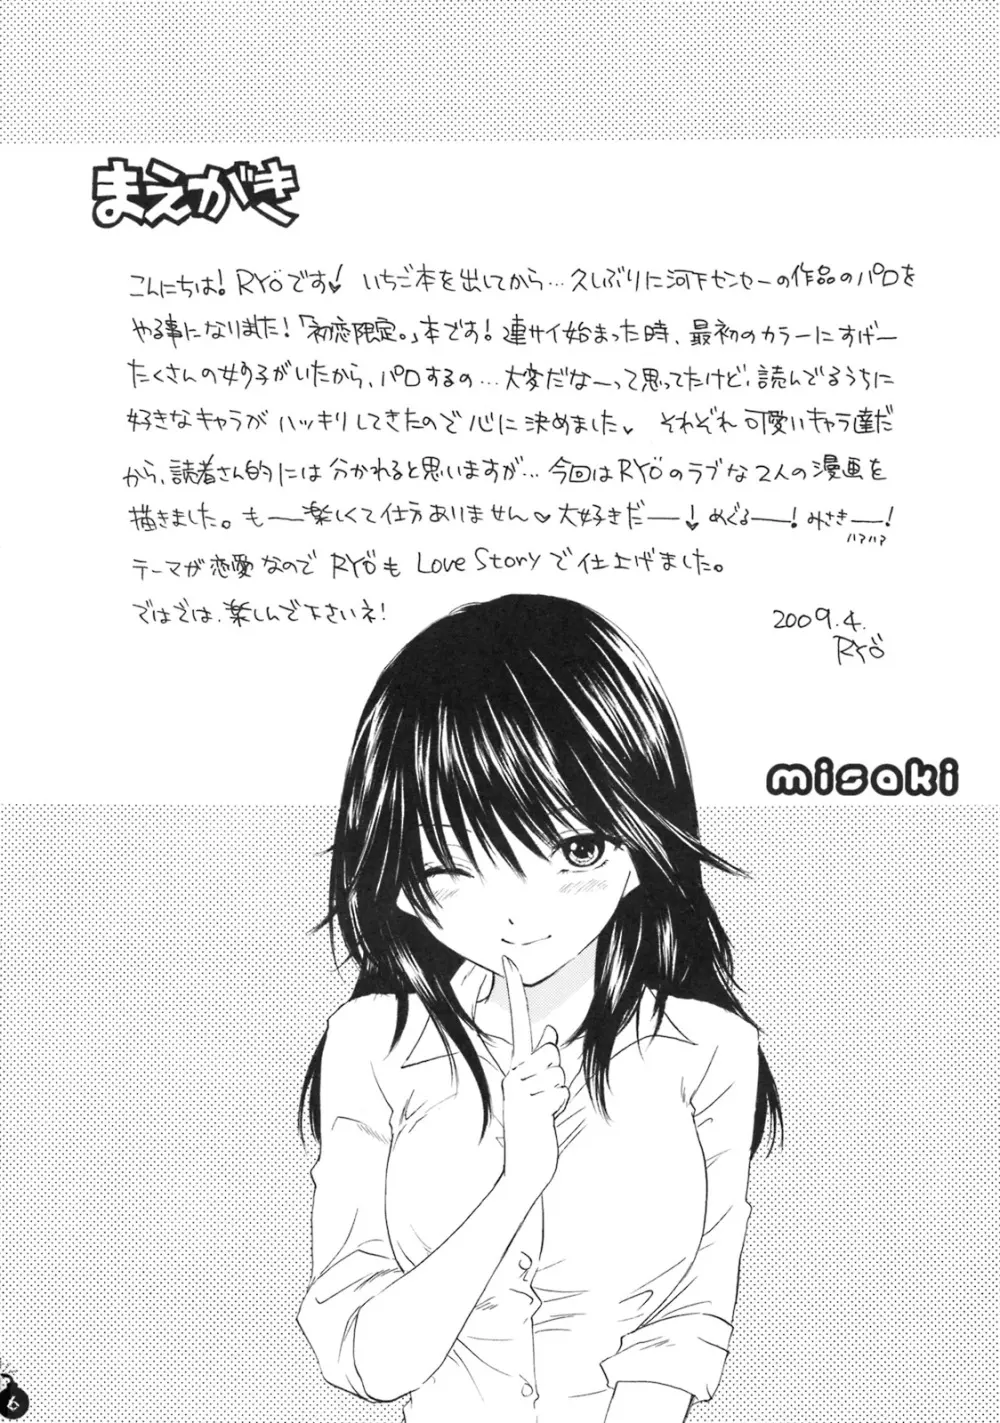 まえがき
こんにちは！RYÖです♥ いちご本を出してから…久しぶりに河下センセーの作品のパロを
やる事になりました！「初恋限定。」本です！連サイ始まった時、最初のカラーにすげー
たくさんの女の子がいたから、パロするの…大変だなーって思ってたけど、読んでるうちに
好きなキャラがハッキリしてきたので心に決めました♥ それぞれ可愛いキャラ達だ
から、読者さん的には分かれると思いますが…今回はRYÖのラブな2人の漫画を
描きました。もー楽しくて仕方ありません♥大好きだーー！めぐるー！みさきー！
ハァハァ
テーマが恋愛なので RYÖも Love Storyで仕上げました。
ではでは、楽しんで下さいネ！
2009.4.
RYÖ
misaki
6